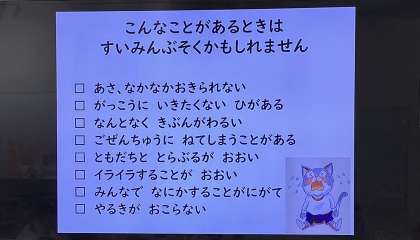 こんなことがあるときは
すいみんぶそくかもしれません
□ あさ、なかなかおきられない
□ がっこうに いきたくない ひがある
□ なんとなく きぶんがわるい
□ ごぜんちゅうに ねてしまうことがある
□ ともだちと とらぶるが おおい
□ イライラすることが おおい
□ みんなで なにかすることがにがて
□ やるきが おこらない